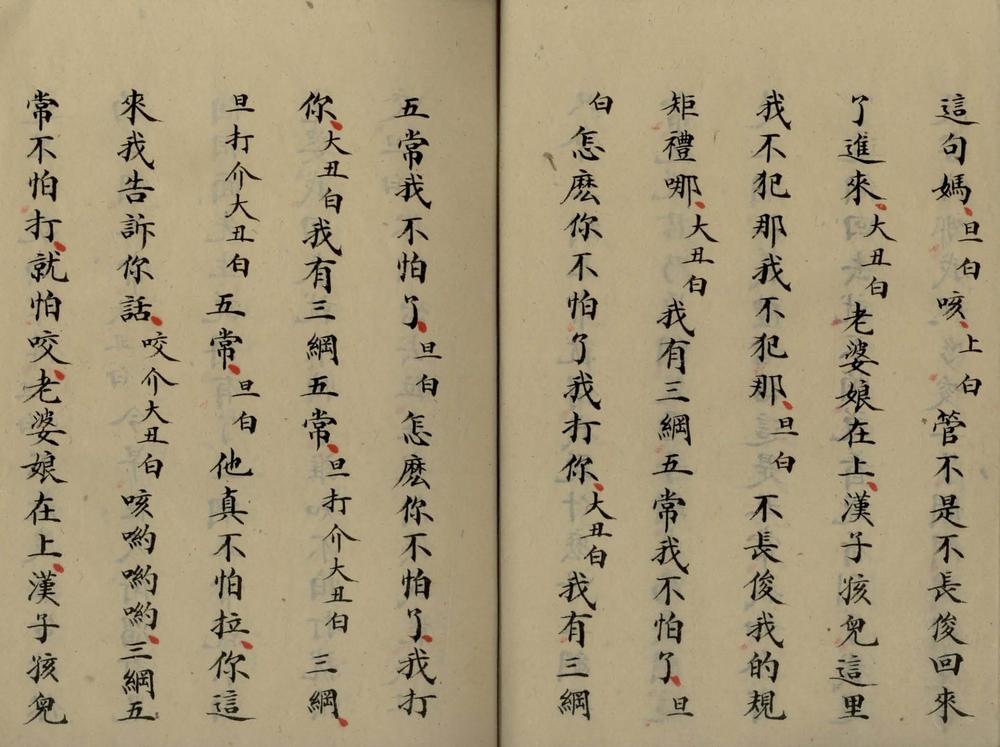 這句媽旦白咳上白管不是不長俊回來
了進來大丑白老婆娘在上漢子孩兒這里
我不犯那我不犯那旦白不長俊我的規
矩禮哪大丑白我有三綱五常我不怕了旦
白怎麽你不怕了我打你大丑白我有三綱
五常我不怕了旦白怎麽你不怕了我打
你大丑白我有三綱五常旦打介大丑白三綱
旦打介大丑白五常旦白他真不怕拉你這
來我告訴你話咬介大丑白咳喲喲喲三綱五
常不怕打就怕咬老婆娘在上漢子孩兒